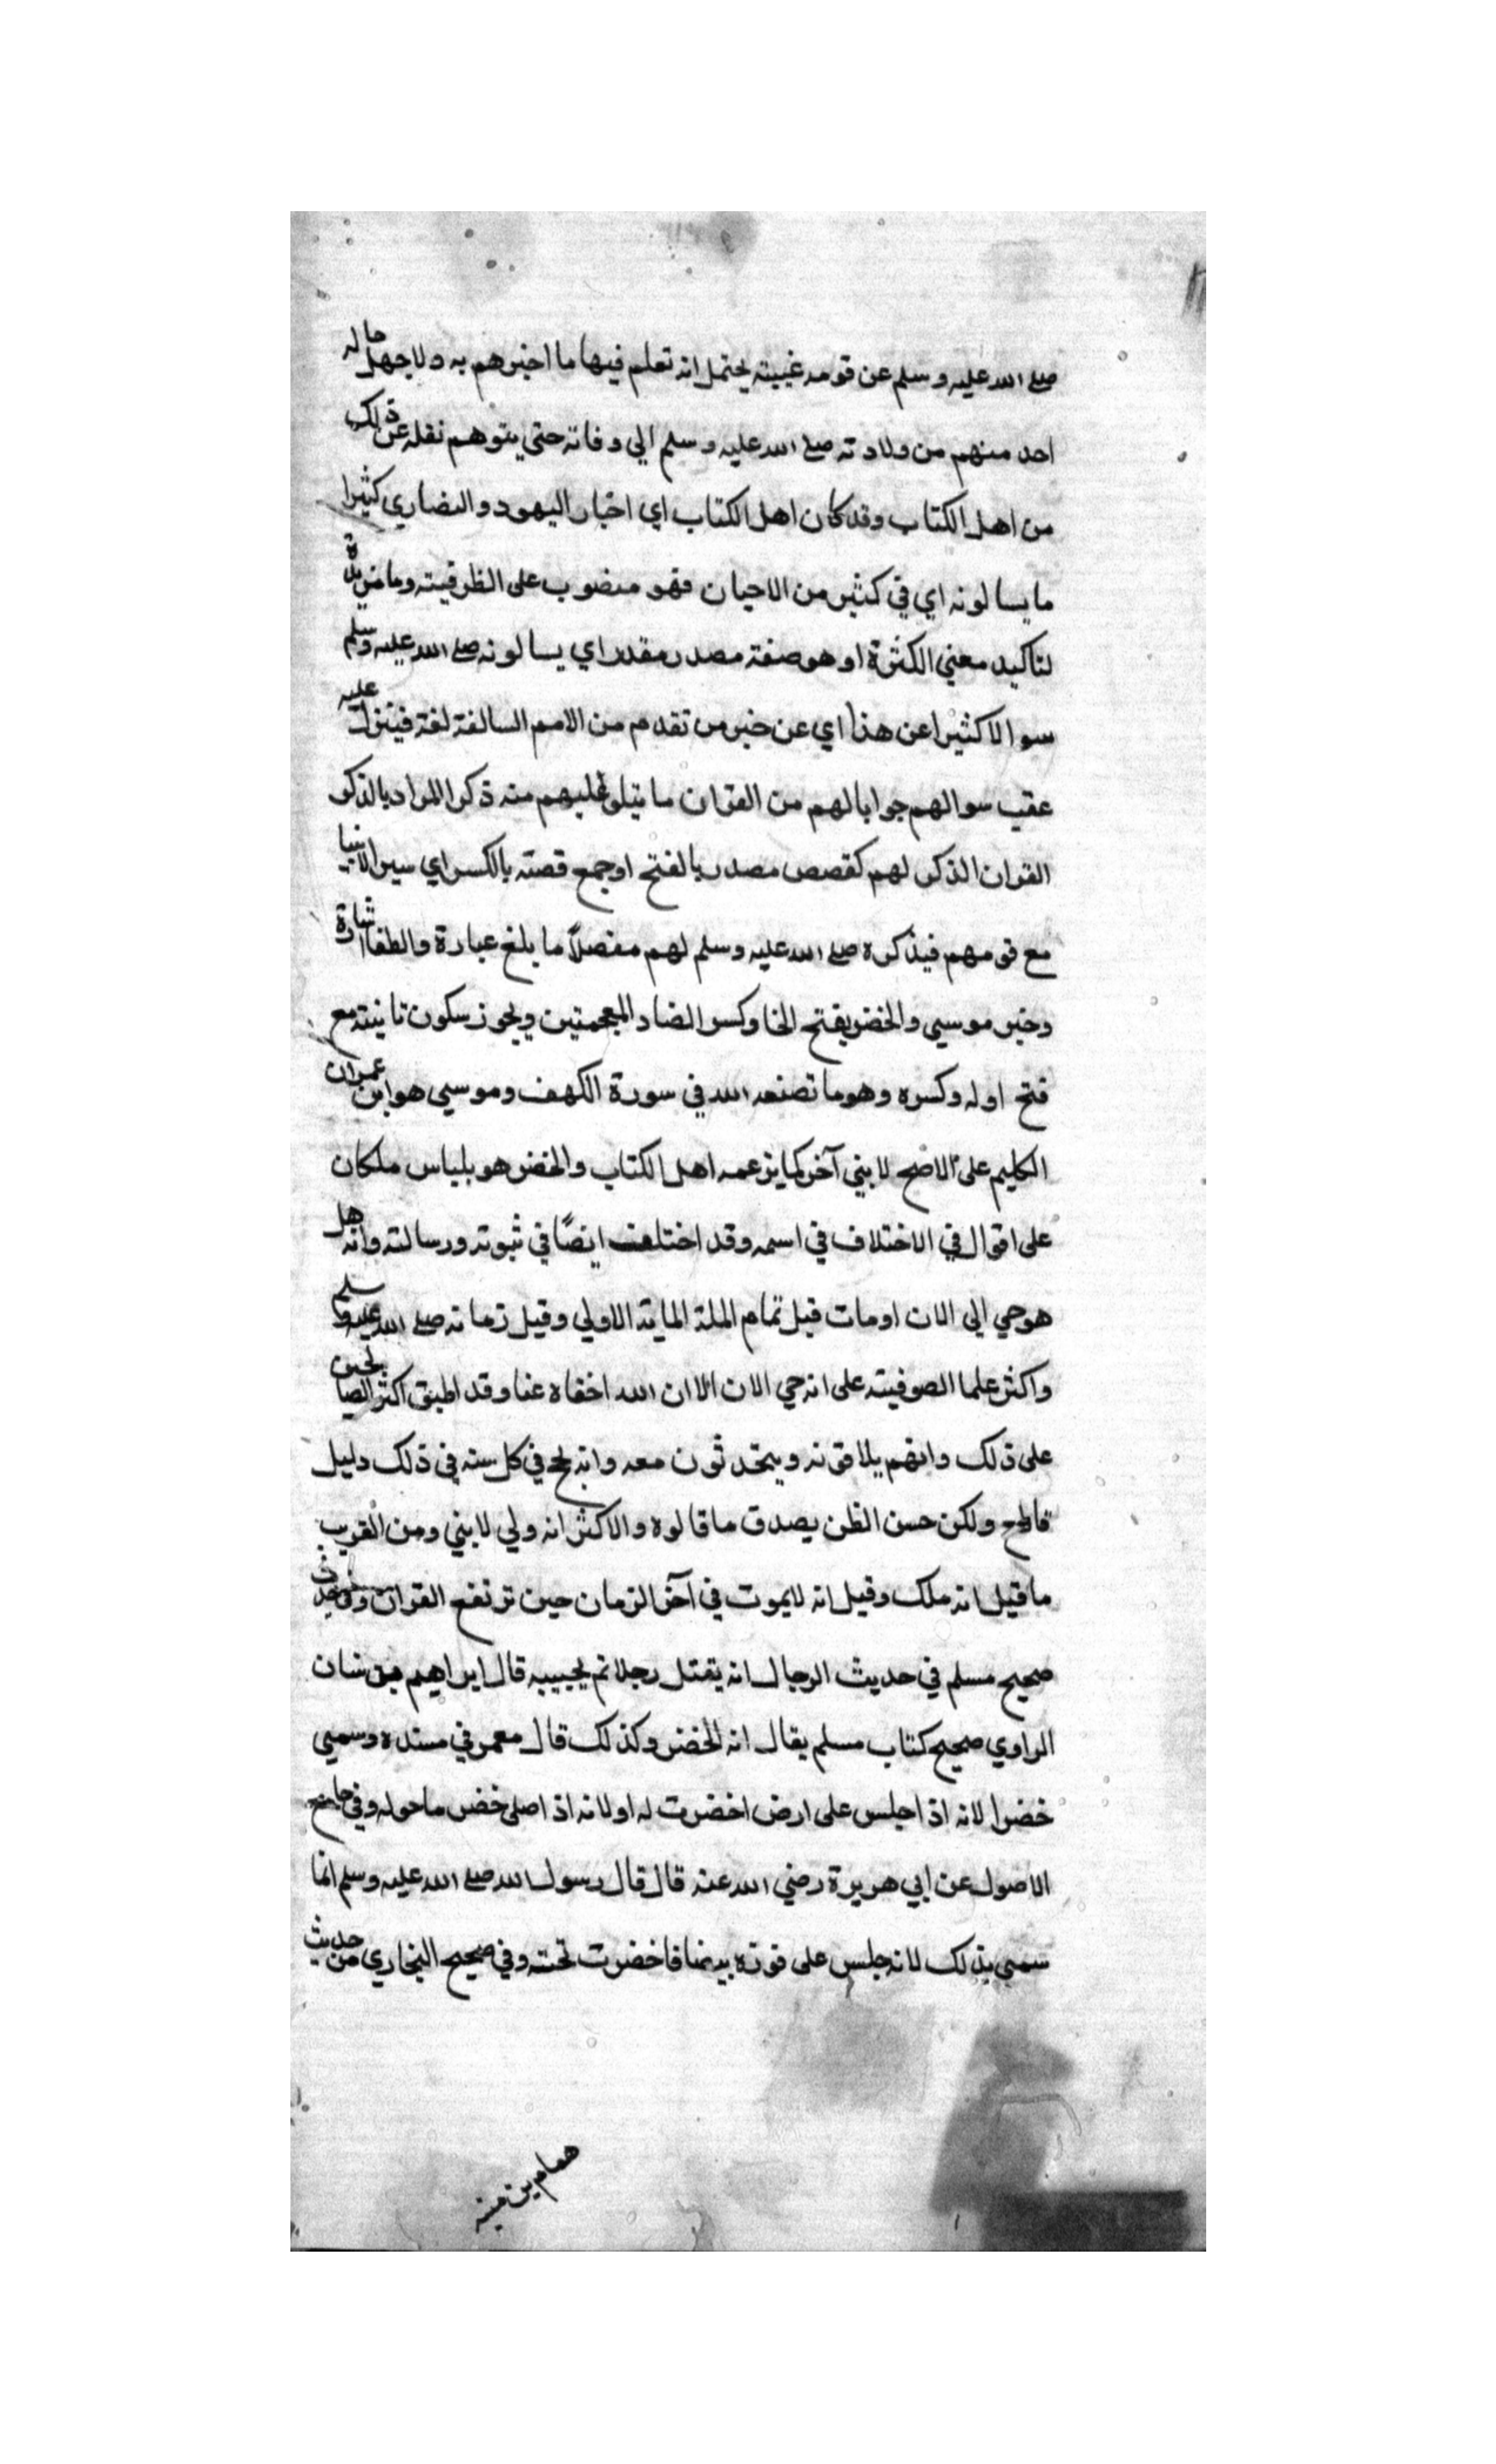 صلے الله عليه وسلم عن قومه غيبته يحتمل انه تعلم فيها ما اخبرهم به ولا جهل حاله
احد منهم من ولادته صلے الله عليه وسلم الي وفاته حتي يتوهم نقله عن ذلك
من اهل الكتاب وقد كان اهل الكتاب اي اخبار اليهود والنصاري كثيرا
ما يسالونه اي في كثير من الاحيان فهو منصوب على الظرفيته وما مزيدة
لتاكيد معني الكثرة او هو صفة مصدر مقدر اي يسالونه صلے الله عليه وسلم
سوالا كثيرا عن هذا اي عن خبر من تقدم من الامم السالفة لغة فينزل عليه
عقب سوالهم جوابا لهم من القران ما يتلو عليهم منه ذكرا المراد بالذكر
القران الذكر لهم كقصص مصدر بالفتح او جمع قصته بالكسر اي سير الانبيا
مع قومهم فيذكره صلے الله عليه وسلم لهم مفصلاً ما بلغ عبارة والطف اشارة
وخبر موسي والخضر بفتح الخا وكسر الضاد المعجمتين ويجوز سكون ثانيته مع
فتح اوله وكسره وهو ما تصنعه الله في سورة الكهف وموسي هو ابن عمران
الكليم على الاصح لا بني آخر كما يزعمه اهل الكتاب والخضر هو بلياس ملكان
على اقوال في الاختلاف في اسمه وقد اختلف ايضًا في نبوته ورسالته وانه هل
هو حي الي الان او مات قبل تمام الملة الماية الاولي وقيل زمانه صلے الله عليه وسلم
واكثر علما الصوفيته على انه حي الان الا ان الله اخفاه عنا وقد اطبق اكثر الصالحين
على ذلك وانهم يلاقونه ويتحدثون معه وانه يحج في كل سنه في ذلك دليل
قاطع ولكن حسن الظن يصدق ما قالوه والاكثر انه ولي لا بني ومن الغريب
ما قيل انه ملك وقيل انه لا يموت في آخر الزمان حين ترتفع القران وفي حديث
صحيح مسلم في حديث الدجال انه يقتل رجلا ثم يحييه قال ابراهيم بن سان
الراوي صحيح كتاب مسلم يقال انه الخضر وكذلك قال معمر في مسنده وسمي
خضرا لانه اذا جلس على ارض اخضرت له او لانه اذ اصلي خضر ما حوله وفي جامع
الاصول عن ابي هريرة رضي الله عنه قال قال رسول الله صلے الله عليه وسلم انما
سمي بذلك لانه جلس على فروة بيضا فاخضرت تحته وفي صحيح البخاري من حديث
همام بن منبه